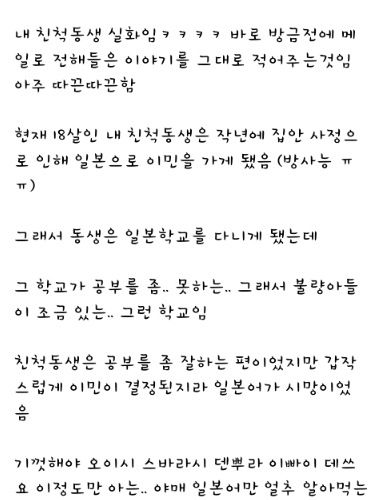 내 친척동생 실화임ㅋㅋㅋㅋ 바로 방금전에 메
일로 전해들은 이야기를 그대로 적어주는것임
아주 따끈따끈함
현재 18살인 내 친척동생은 작년에 집안 사정으
로 인해 일본으로 이민을 가게 됐음 (방사능 ㅠ
ㅠ)
그래서 동생은 일본학교를 다니게 됐는데
그 학교가 공부를 좀.. 못하는.. 그래서 불량아들
이 조금 있는.. 그런 학교임
친척동생은 공부를 좀 잘하는 편이었지만 갑작
스럽게 이민이 결정된지라 일본어가 시망이었
음
기껏해야 오이시 스바라시 덴뿌라 이빠이 데쓰
요 이정도만 아는.. 야매 일본어만 얼추 알아먹는